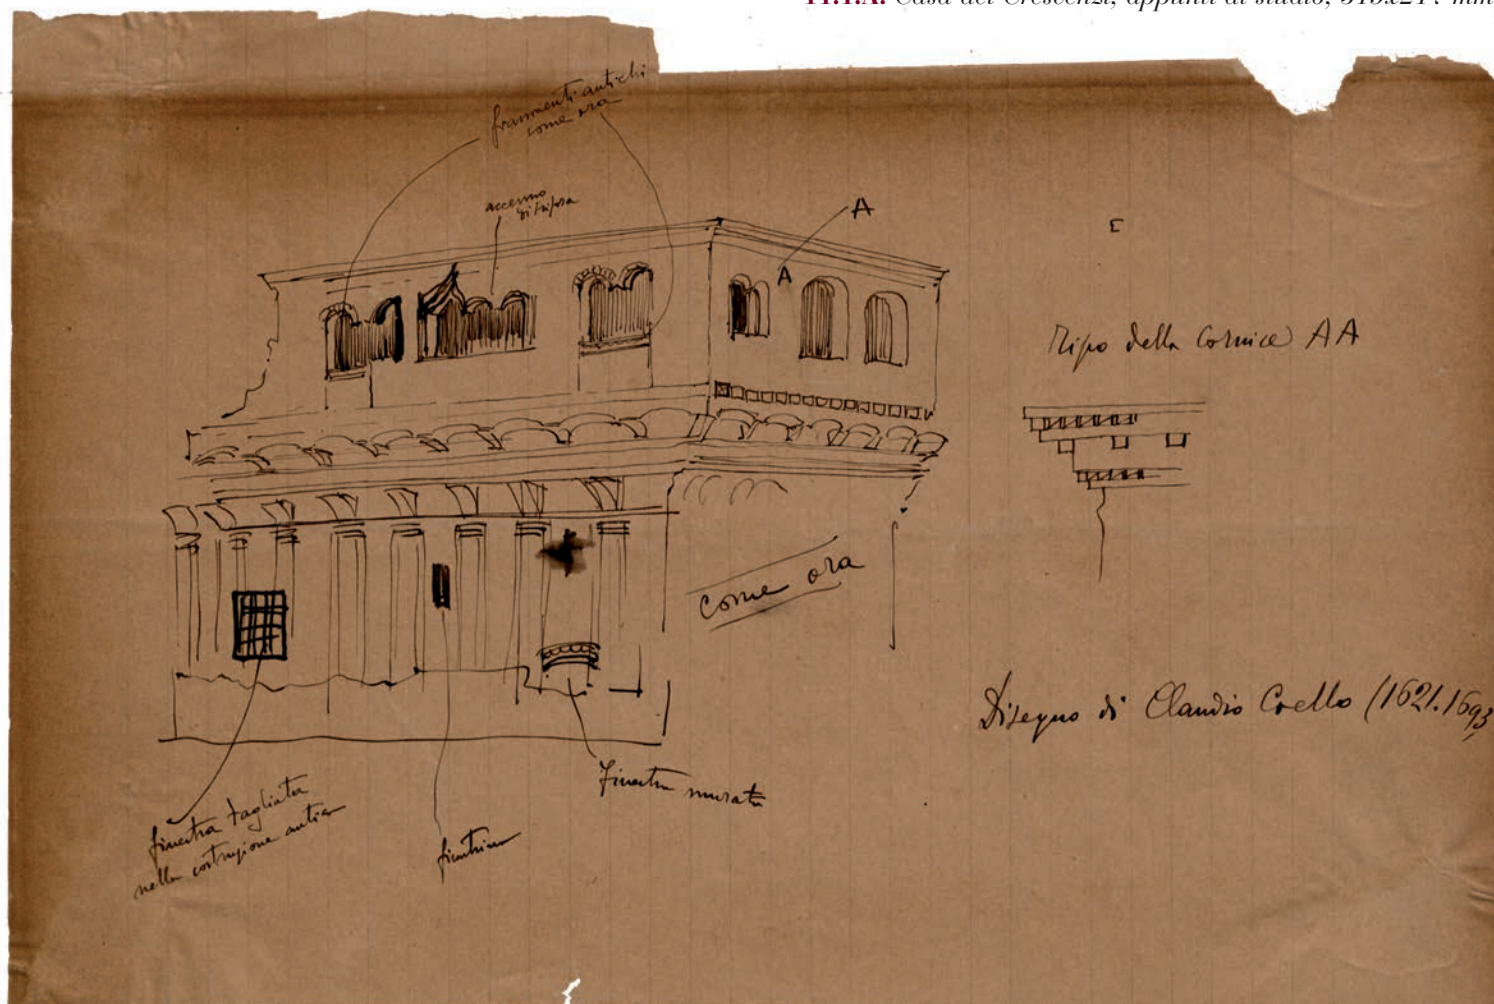 Casa dei Crescenzi, appunti di studio,
frammenti antichi
come ora
accenno
di trifora
A
A
Tipo della Cornice AA
come ora
Disegno di Claudio Coello (1621.1693
finestra murata
finestra tagliata
nella costruzione antica
finestrino